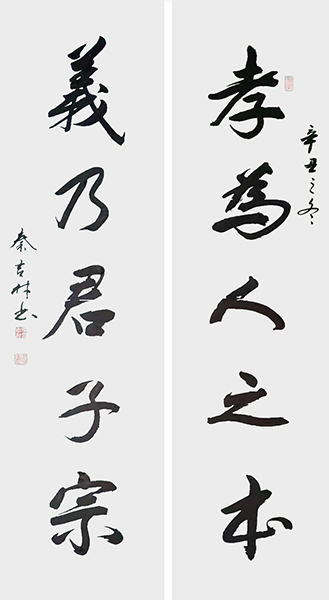 孝為人之本
辛丑之冬
義乃君子宗
秦吉林书